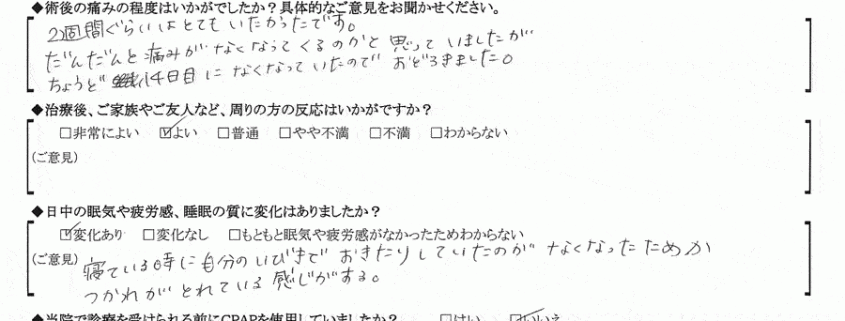 ◆術後の痛みの程度はいかがでしたか？具体的なご意見をお聞かせください。
2週間ぐらいはとてもいたかったです。
だんだんと痛みがなくなってくるのかと思っていましたが
ちょうど14日目になくなっていたのでおどろきました。
◆治療後、ご家族やご友人など、周りの方の反応はいかがですか？
□非常によい ☑よい □普通 □やや不満 □不満 □わからない
（ご意見）
◆日中の眠気や疲労感、睡眠の質に変化はありましたか？
☑変化あり □変化なし □もともと眠気や疲労感がなかったためわからない
（ご意見）寝ている時に自分のいびきでおきたりしていたのがなくなったためか
つかれがとれている感じがする。
◆当院で診療を受けられる前にCPAPを使用していましたか？ □はい ☑いいえ